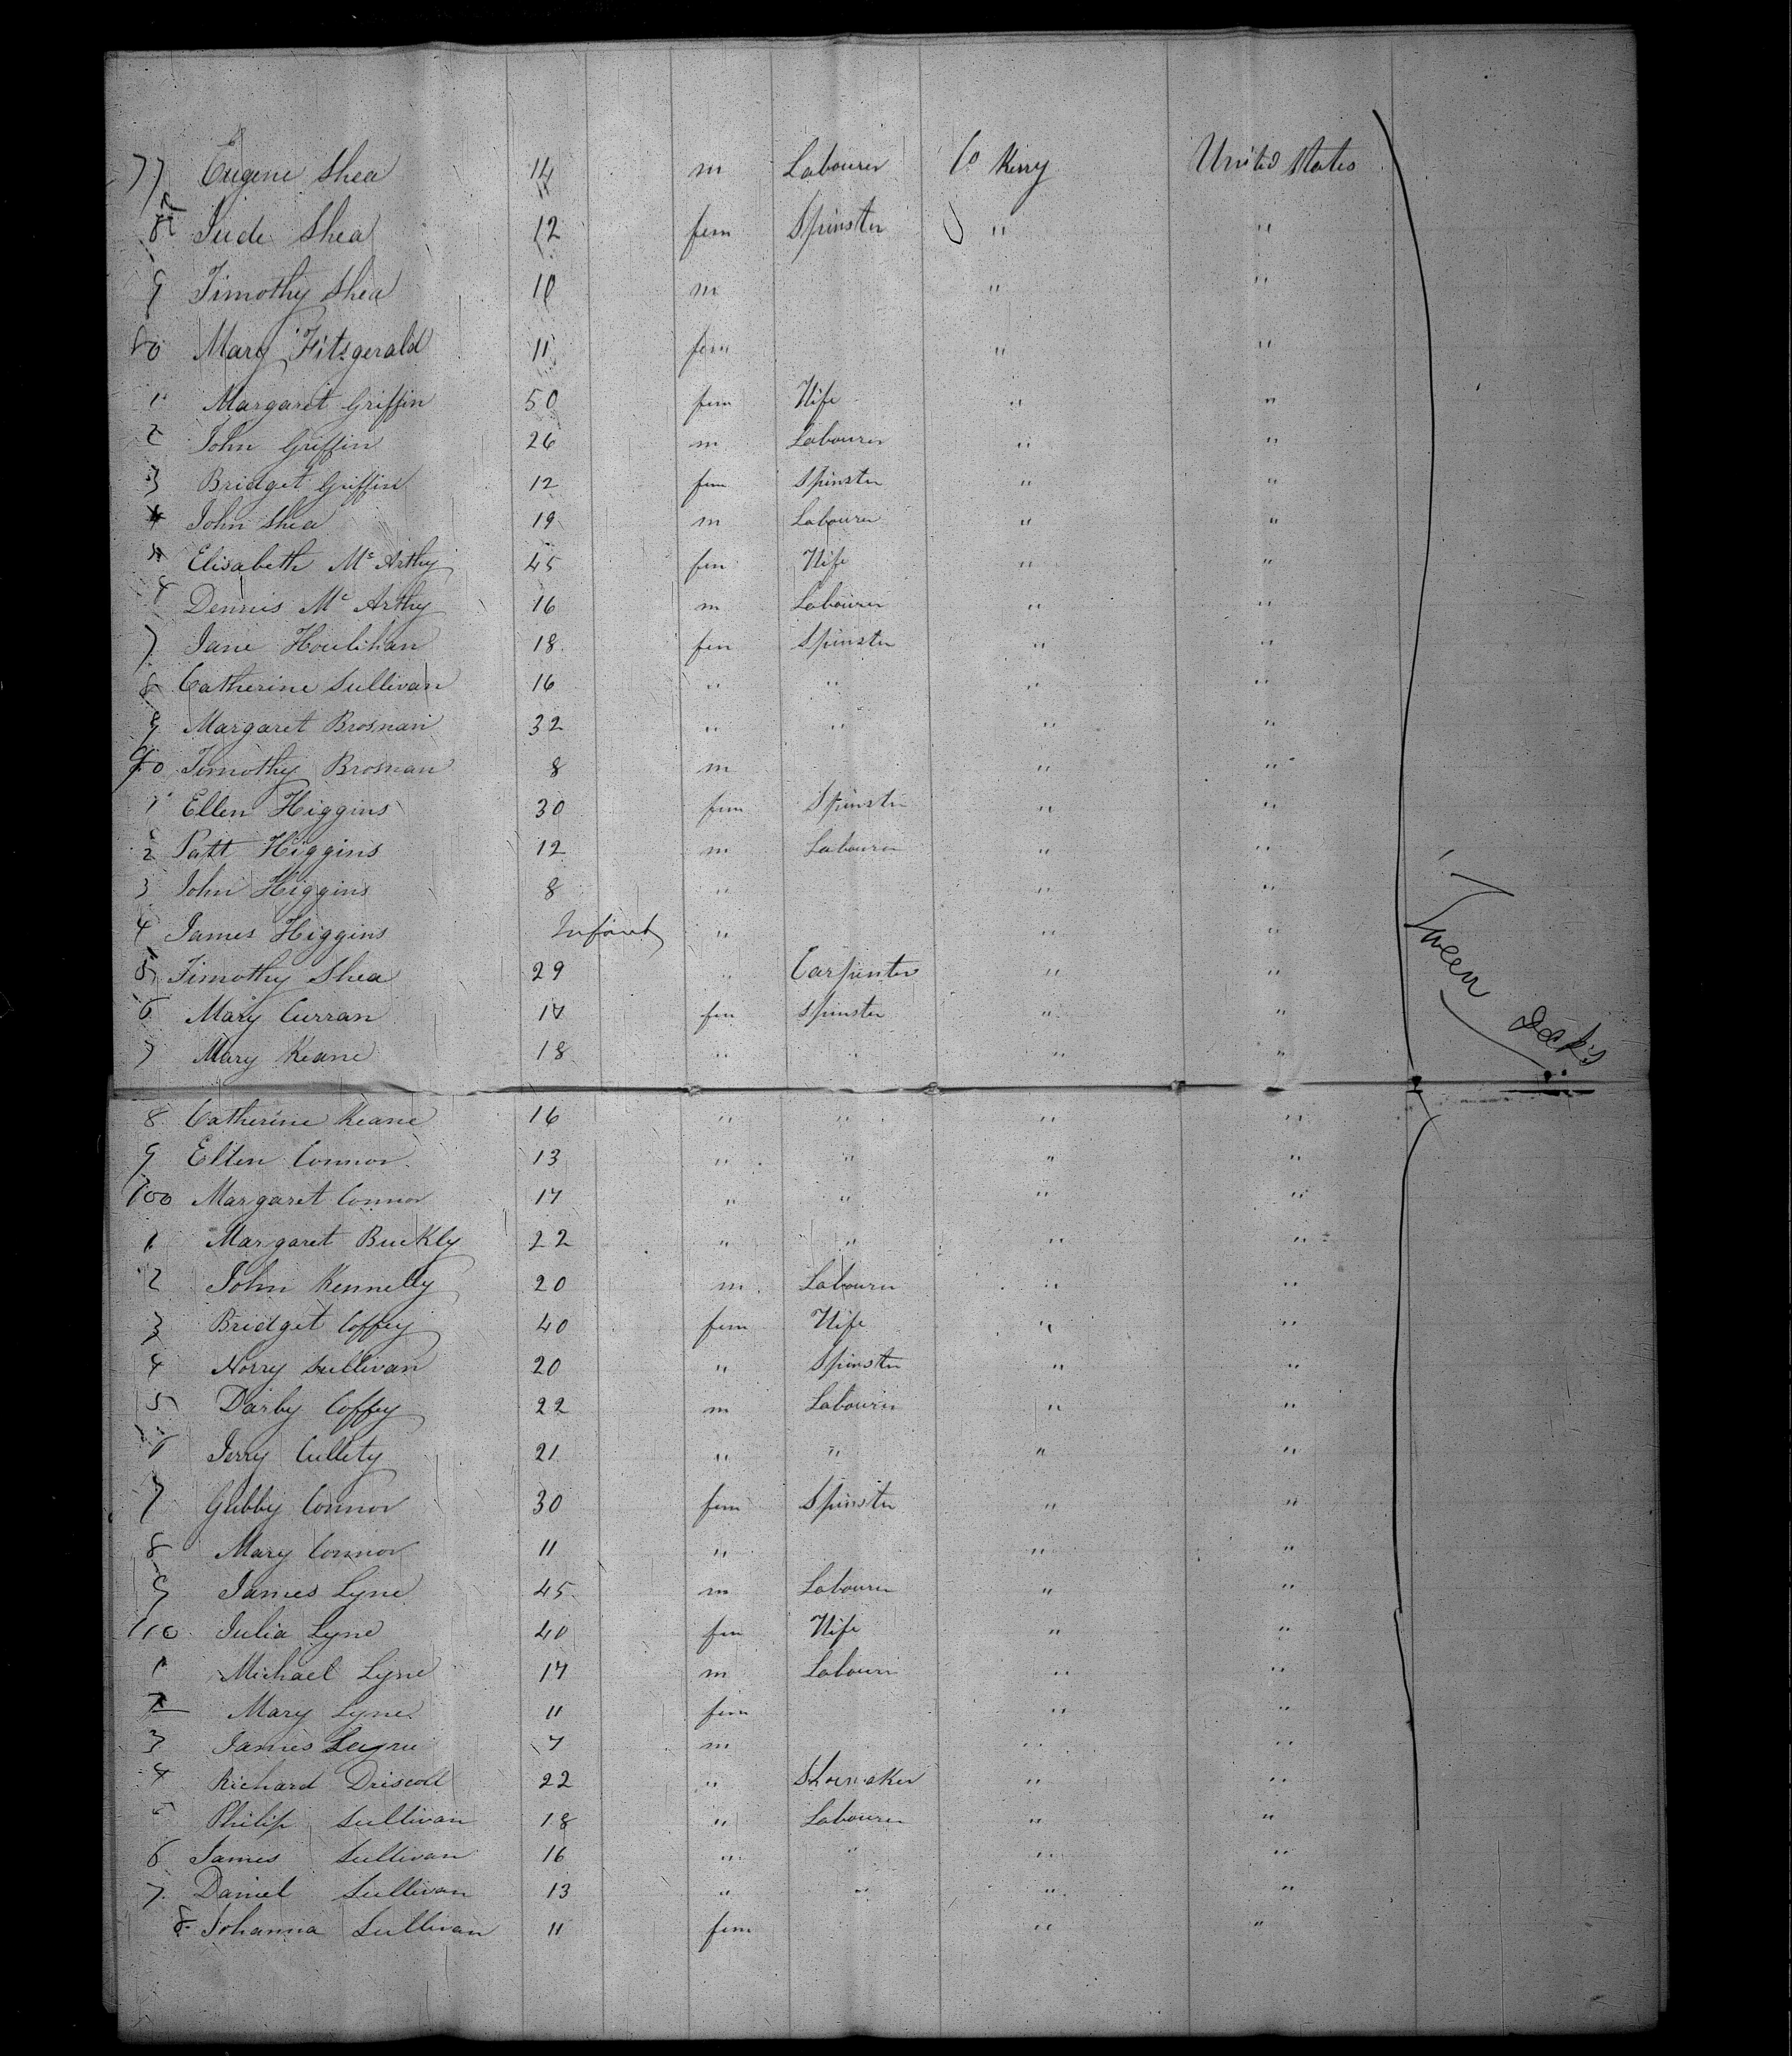 77 Eugene Shea 14 m Labourer Co Kerry United States
8 Jude Shea 12 fem Spinster " "
9 Timothy Shea 10 m " "
80 Mary Fitsgerald 11 fem " "
1 Margaret Griffin 50 fem Wife " "
2 John Griffin 26 m Labourer " "
3 Bridget Griffin 12 fem Spinster " "
4 John Shea 19 m Labourer " "
5 Elisabeth Mc Arthy 45 fem Wife " "
6 Dennis Mc Arthy 16 m Labourer " "
7 Jane Houlihan 18 fem Spinster " "
8 Catherine Sullivan 16 " " " "
9 Margaret Brosnan 32 " " " "
90 Timothy Brosnan 8 m " "
1 Ellen Higgins 30 fem Spinster " "
2 Patt Higgins 12 m Labourer " "
3 John Higgins 8 " " "
4 James Higgins Infant " " "
5 Timothy Shea 29 " Carpenter " "
6 Mary Curran 17 fem Spinster " "
7 Mary Keane 18 " " " "
Tween Decks
8 Catherine Keane 16 " " " "
9 Ellen Connor 13 " " " "
100 Margaret Connor 17 " " " "
1 Margaret Buckly 22 " " " "
2 John Kennelly 20 m Labourer " "
3 Bridget Coffey 40 fem Wife " "
4 Norry Sullivan 20 " Spinster " "
5 Darby Coffey 22 m Labourer " "
6 Jerry Cullety 21 " " " "
7 Gubby Connor 30 fem Spinster " "
8 Mary Connor 11 " " "
9 James Lyne 45 m Labourer " "
110 Julia Lyne 40 fem Wife " "
1 Michael Lyne 17 m Labourer " "
2 Mary Lyne 11 fem " "
3 James 7 m " "
4 Richard Driscoll 22 " Shoemaker " "
5 Philip Sullivan 18 " Labourer " "
6 James Sullivan 16 " " " "
7 Daniel Sullivan 13 " " " "
8 Johanna Sullivan 11 fem " "